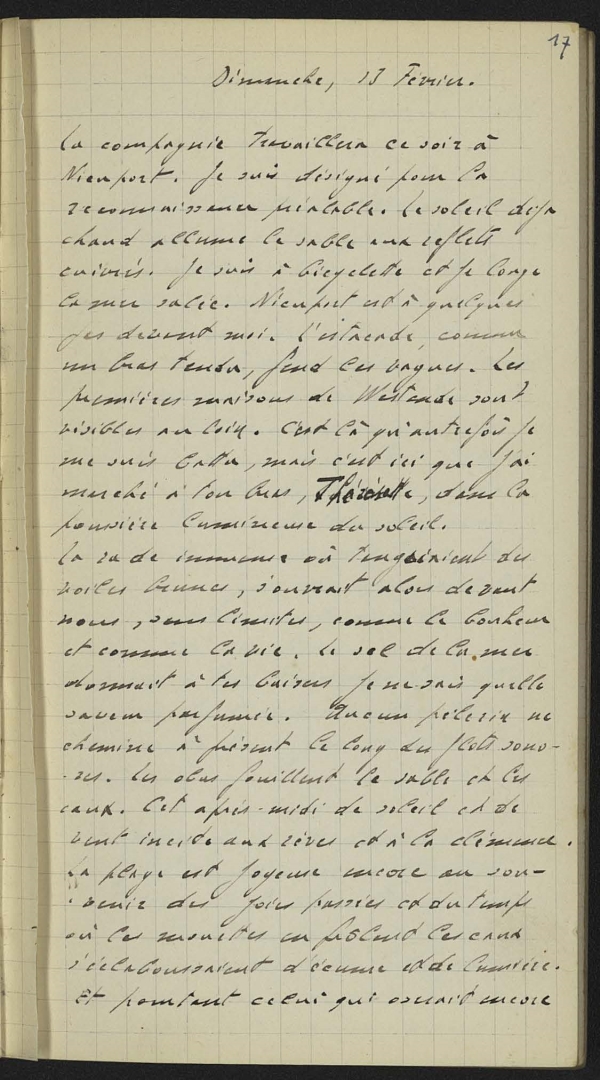 17
Dimanche, 13 Février.
La compagnie travaillera ce soir à
Nieuport. Je suis désigné pour la
reconnaissance préalable. Le soleil déjà
chaud allume le sable aux reflets
cuivrés. Je suis à bicyclette et je longe
la mer salée. Nieuport est à quelques
pas devant moi. L'estacade, comme
un bras tendu, fend les vagues. Les
premières maisons de Westende sont
visibles au loin. C'est là qu'autrefois je
me suis battu, mais c'est ici que j'ai
marché à ton bras, Thérésette, dans la
poussière lumineuse du soleil.
La rade immense où tanguaient des
voiles brunes, s'ouvrait alors devant
nous, sans limites, comme le bonheur
et comme la vie. Le sel de la mer
donnait à tes baisers je ne sais quelle
saveur parfumée. Aucun pèlerin ne
chemine à présent le long des flots sono-
-res. Les obus fouillent le sable et les
eaux. Cet après-midi de soleil et de
vent incite aux rêves et à la clémence.
La plage est joyeuse encore au sou-
venir des joies passées et du temps
où les mouettes en frôlant les eaux
s'éclaboussaient d'écume et de lumière.
Et pourtant celui qui oserait encore